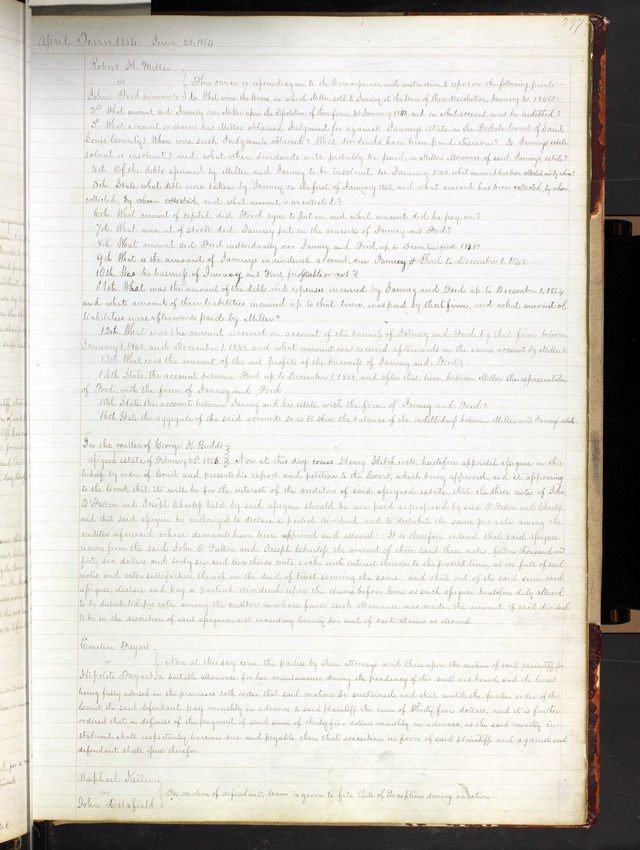 297
April Term 1854. June 28, 1854
Robert H. Miller
vs } This cause is referred again to the Commissioner, with instructions to report on the following points:-
John Ford 1st. What were the terms, on which Miller sold to Tanney, at the time of their dissolution, January 1st,
2nd What amount did Tanney owe Miller upon the dissolution of their firm 1st January and on what account was he indebted?
3d What account or claims has Miller obtained Judgment for against Tanney's estate in the Probate Court of Saint
Louis County? When were such Judgments obtained? What dividends have been paid thereon? Is Tanney's estate
solvent or insolvent? and what other dividends will probably be paid on Miller's allowances of said Tanney's estate?
4th. Of the debts assumed by Miller and Tanney to be insolvent 1st January what amount has been collected and by whom?
5th. State what debts were taken by Tanney on the first of January and what amount has been collected, by whom
collected, and what amount is uncollected?
6th. What amount of capital did Ford agree to put in and what amount did he pay in?
7th. What amount of stock did Tanney put in the concern of Tanney and Ford?
8th. What amount did Ford individually owe Tanney and Ford, up to December first
9th What is the amount of Tanney's individual account, due Tanney & Ford to December 1,
10th Was the business of Tanney and Ford, profitable or not?
11th. What was the amount of the debts and expenses incurred by Tanney and Ford up to December 1,
and what amount of their liabilities incurred up to that time, was paid by their firm, and what amount of
liabilities were afterwards paid by Miller?
12th. What was the amount received on account of the business of Tanney and Ford by that firm between
January 1, and December 1, and what amount was received afterwards on the same account by Miller?
13th What was the amount of the net profits of the business of Tanney and Ford?
14th State the account between Ford up to December 1, and after that time, between Miller the representative
of Ford with the firm of Tanney and Ford
15th State the account between Tanney and his estate, with the firm of Tanney and Ford?
16th. State the aggregate of the said accounts so as to shew the balance of the indebtedness between Miller and Tanney's estate.
In the matter of George K. Budd's
assigned estate of February 25th } Now at this day comes Henry Hitchcock, heretofore appointed assignee in this
behalf by order of Court, and presents his report and petition to the Court, which being approved, and it appearing
to the Court, that it will be for the interest of the creditors of said assigned estate, that the three notes of John
O'Fallon and Joseph Charless held by said assignee should be now paid as proposed by said O'Fallon and Charless,
and that said assignee be authorized to declare a partial dividend, and to distribute the same pro rata among the
creditors aforesaid whose demands have been approved and allowed. It is therefore ordered that said assignee
receive from the said John O'Fallon and Joseph Charless, the amount of their said three notes, for One thousand and
forty six dollars and sixty six and two thirds cents, each, with interest thereon to the present time, as in full of said
notes, and enter satisfaction thereof on the deed of trust securing the same. and that out of the said sum said
assignee declare and pay a partial dividend upon the claims before him as such assignee heretofore duly allowed
to be distributed pro rata among the creditors in whose favor such allowances was made, the amount of said dividend
to be in the discretion of said assignee, not exceeding twenty per cent of said claims as allowed.
Emeline Dayart
vs } Now at this day come the parties by their attorneys and thereupon the motion of said plaintiff for
Hipolite Dayart a suitable allowance for her maintainance during the pendency of this suit was heard, and the Court
being fully advised in the premises doth order that said motion be sustained, and that until the further order of this
Court, the said defendant pay monthly in advance to said plaintiff the sum of Thirty five dollars, and it is further
ordered that in default of the payment of said sum of thirty five dollars monthly in advance, as the said monthly in-
stalments shall respectively become due and payable, then that execution in favor of said plaintiff and against said
defendant shall issue therefor
Raphael Keiler
vs } On motion of defendant, leave is given to file Bill of Exceptions during vacation.
John Delafield